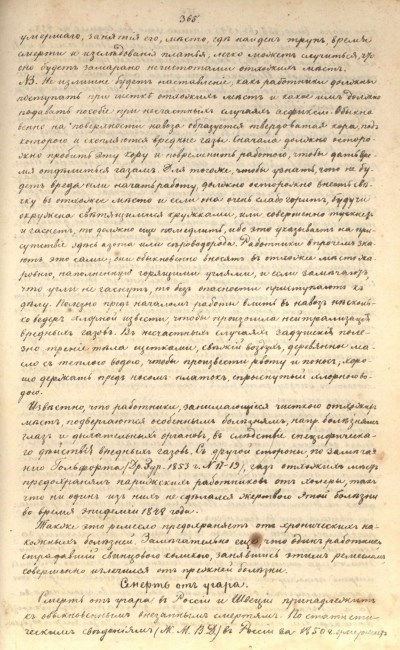 365.
умершаго, занятiя его, мѣсто, гдѣ найденъ трупъ, время
смерти и изслѣдованiя платья, легко можетъ случиться,
оно будетъ замарано нечистотами отхожихъ мѣстъ.
NB. Не излишне будетъ наставленiе, какъ работники должны
поступать при чисткѣ отхожихъ мѣстъ и какое имъ должно
подавать пособiе при несчастныхъ случаяхъ асфиксiи. Обыкно
венно на поверхности навоза образуется твердоватая кора, подъ
которою и скопляются вредные газы. Сначала должно осторо
жно пробить эту кору и повременить работою, чтобы дать вре
мя отдѣлиться газамъ. Для того же, чтобы узнать, что не бу
детъ вреда если начать работу, должно осторожно внести свѣ
чку въ отхожее мѣсто и если она очень слабо горитъ, будучи
окружена свѣтящимися кружками, или совершенно тускнѣетъ
и гаснетъ, то должно еще помедлить, ибо это указываетъ на при
сутствiе здѣсь азота или сѣроводорода. Работники впрочемъ зна
ютъ это сами; они обыкновенно вносятъ въ отхожiе мѣста жа
ровню, наполненную горящими углями, и если замѣчаютъ
что угли не гаснутъ, то безъ опасности приступаютъ къ
дѣлу. Полезно предъ началомъ работы влить въ навозъ нѣсколь
ко ведеръ хлорной извести, чтобы произошла нейтрализацiя
вредныхъ газовъ. Въ несчастныхъ случаяхъ задушенiя поле
зно тренiе тѣла щетками, свѣжiй воздухъ, деревянное ма
сло съ теплою водою, чтобы произвести рвоту и поносъ, хоро
шо держать предъ носомъ платокъ, спрыснутый хлорною во
дою.
Извѣстно, что работники, занимающiеся чисткою отхожихъ
мѣстъ подвергаются особеннымъ болѣзнямъ, напр. болѣзнямъ
глазъ и дыхательныхъ органовъ, въ слѣдствiе специфическа
го дѣйствiя вредныхъ газовъ. Съ другой стороны, по замѣча
нiю 1853 г. газъ отхожихъ мѣстъ
предохранялъ парижскихъ работниковъ отъ холеры, такъ
что ни одинъ изъ нихъ не сдѣлался жертвою этой болѣзни
во время эпидемiи года.
Также это ремесло предохраняетъ отъ хроническихъ на
кожныхъ болѣзней. Замѣчательно еще, что одинъ работникъ
страдавшiй свинцовою коликою, занявшись этимъ ремесломъ
совершенно излечился отъ прежней болѣзни.
Смерть отъ угара.
Смерть отъ угара въ Россiи и Швецiи принадлежитъ
къ обыкновеннымъ внезапнымъ смертямъ. По статисти
ческимъ свѣдѣнiямъ (Ж. М. В. Д.) въ Россiи за 1850 г.